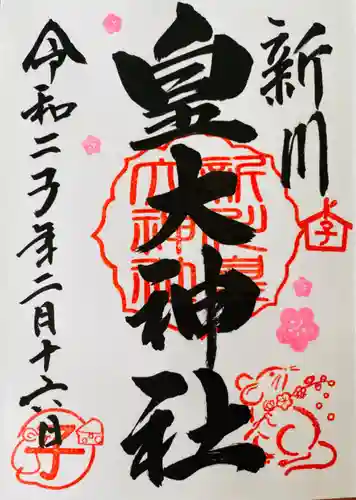 新川
皇大神社
令和二子年二月十六日
新川皇大神社
子
子